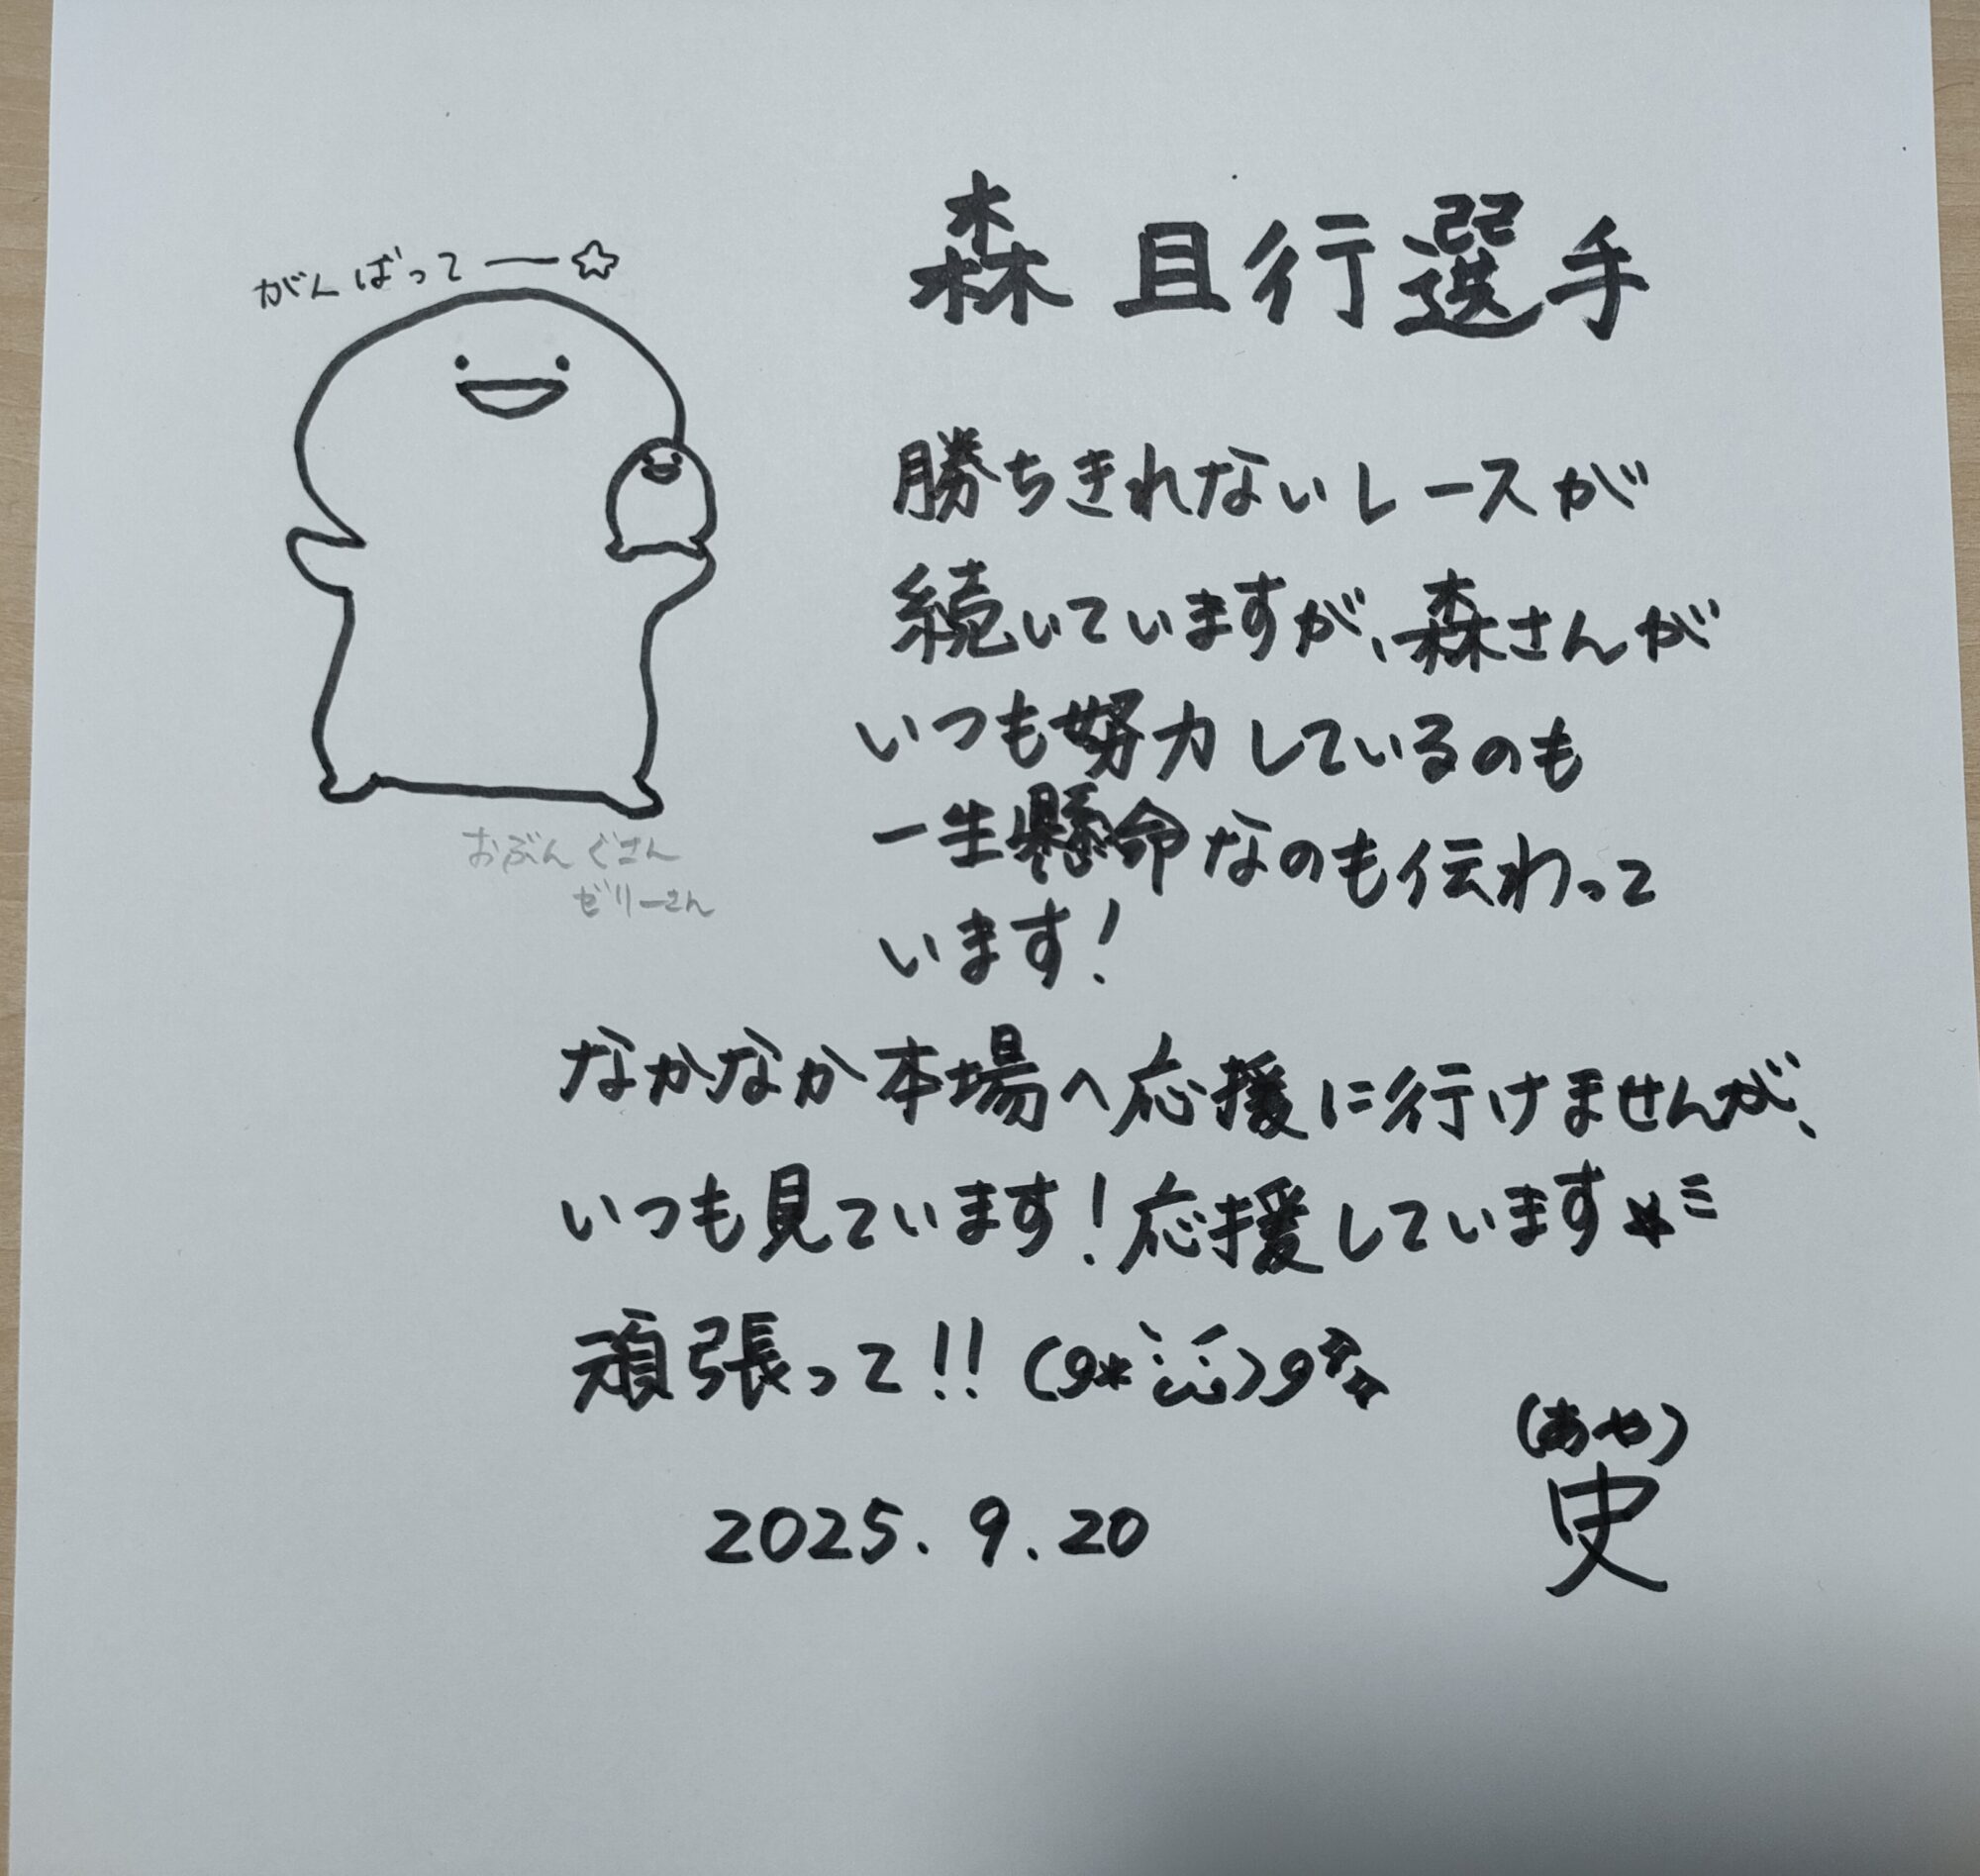 がんばってー☆
おぶんぐさん
ゼリーさん
森 且行選手
勝ちきれないレースが
続いていますが、森さんが
いつも努力しているのも
一生懸命なのも伝わって
います!
なかなか本場へ応援に行けませんが、
いつも見ています!応援しています★ミ
頑張って!!
(あや)
史
2025.9.20